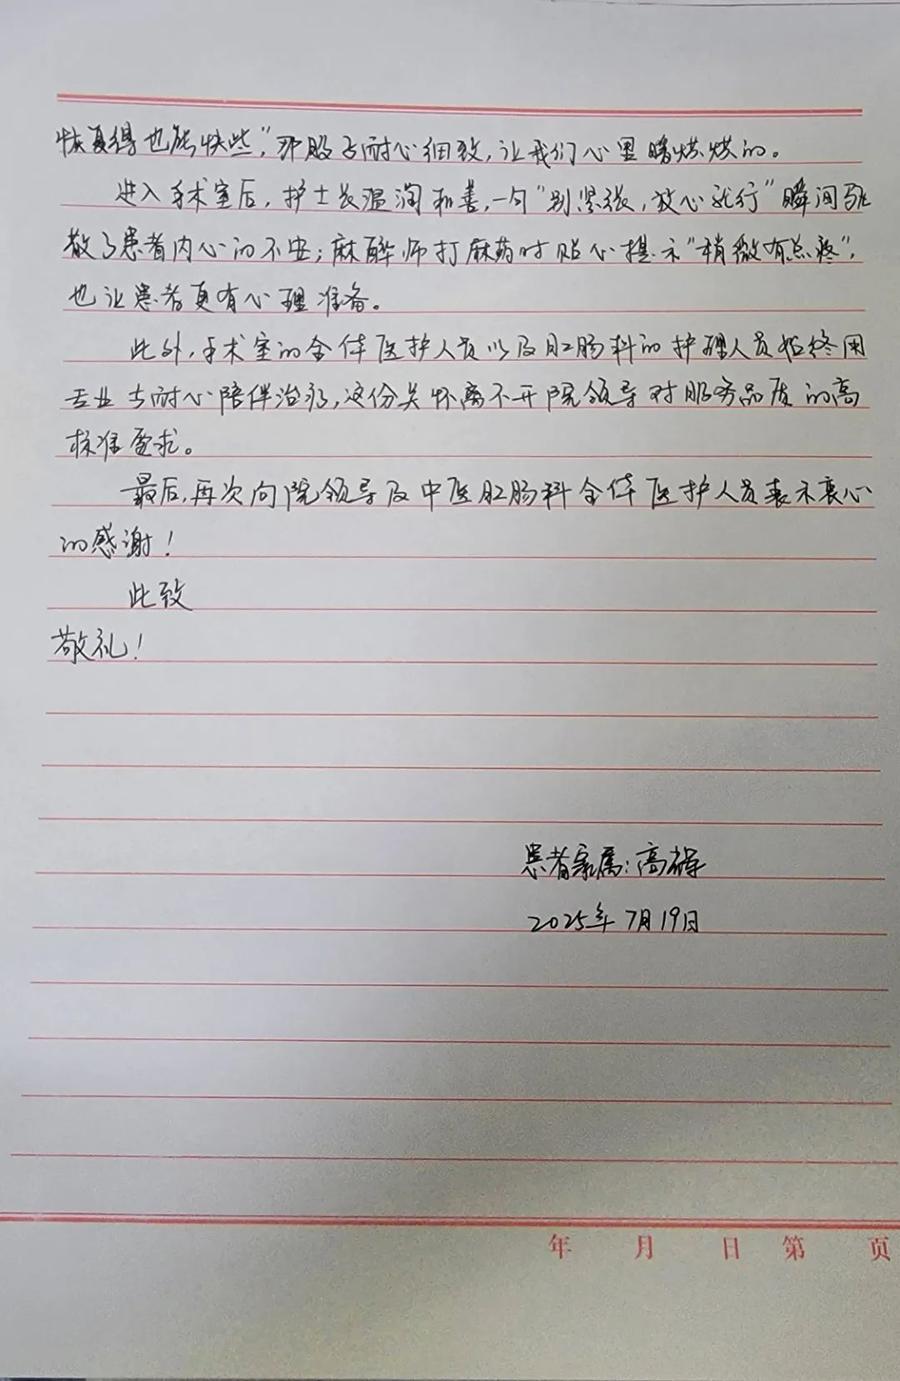 恢复得也能快些”，那股子耐心细致，让我们心里暖烘烘的。
进入手术室后，护士长温润和善，一句“别紧张，放心就行”瞬间驱
散了患者内心的不安；麻醉师打麻药时贴心提示“稍微有点疼”，
也让患者更有心理准备。
此外，手术室的全体医护人员以及肛肠科的护理人员始终用
专业与耐心陪伴治疗，这份关怀离不开院领导对服务品质的高
标准要求。
最后，再次向院领导及中医肛肠科全体医护人员表示衷心
的感谢！
此致
敬礼！
患者家属：高
2025年7月19日
年 月 日 第 页